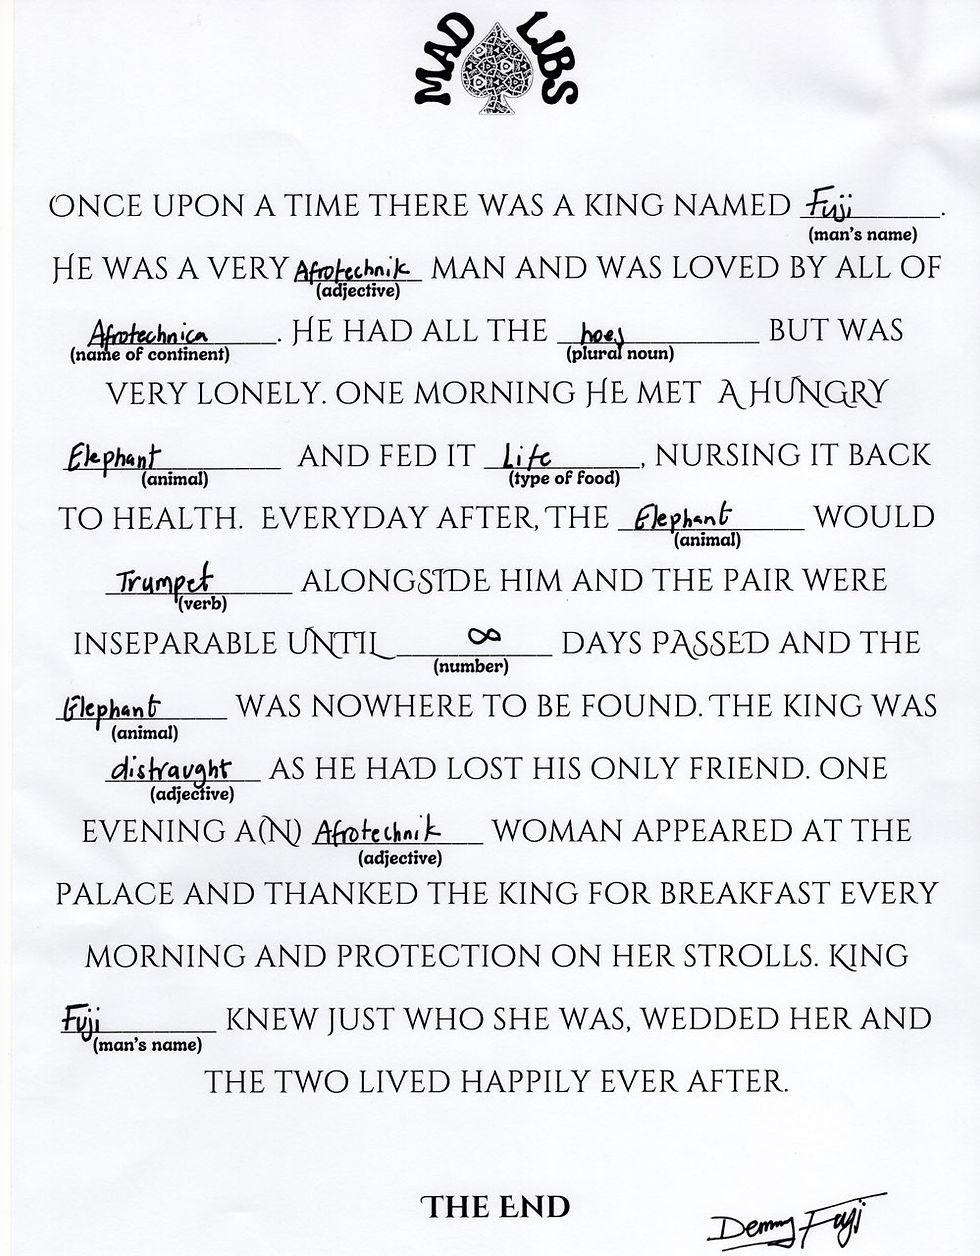 MAD LIBS
ONCE UPON A TIME THERE WAS A KING NAMED Fuji.
(man's name)
HE WAS A VERY Afrotechnik MAN AND WAS LOVED BY ALL OF
(adjective)
Afrotechnica. HE HAD ALL THE hoes BUT WAS
(name of continent) (plural noun)
VERY LONELY. ONE MORNING HE MET A HUNGRY
Elephant AND FED IT Life, NURSING IT BACK
(animal) (type of food)
TO HEALTH. EVERYDAY AFTER, THE Elephant WOULD
(animal)
Trumpet ALONGSIDE HIM AND THE PAIR WERE
(verb)
INSEPARABLE UNTIL ∞ DAYS PASSED AND THE
(number)
Elephant WAS NOWHERE TO BE FOUND. THE KING WAS
(animal)
distraught AS HE HAD LOST HIS ONLY FRIEND. ONE
(adjective)
EVENING A(N) Afrotechnik WOMAN APPEARED AT THE
(adjective)
PALACE AND THANKED THE KING FOR BREAKFAST EVERY
MORNING AND PROTECTION ON HER STROLLS. KING
Fuji KNEW JUST WHO SHE WAS, WEDDED HER AND
(man's name)
THE TWO LIVED HAPPILY EVER AFTER.
THE END
Demmy Fuji